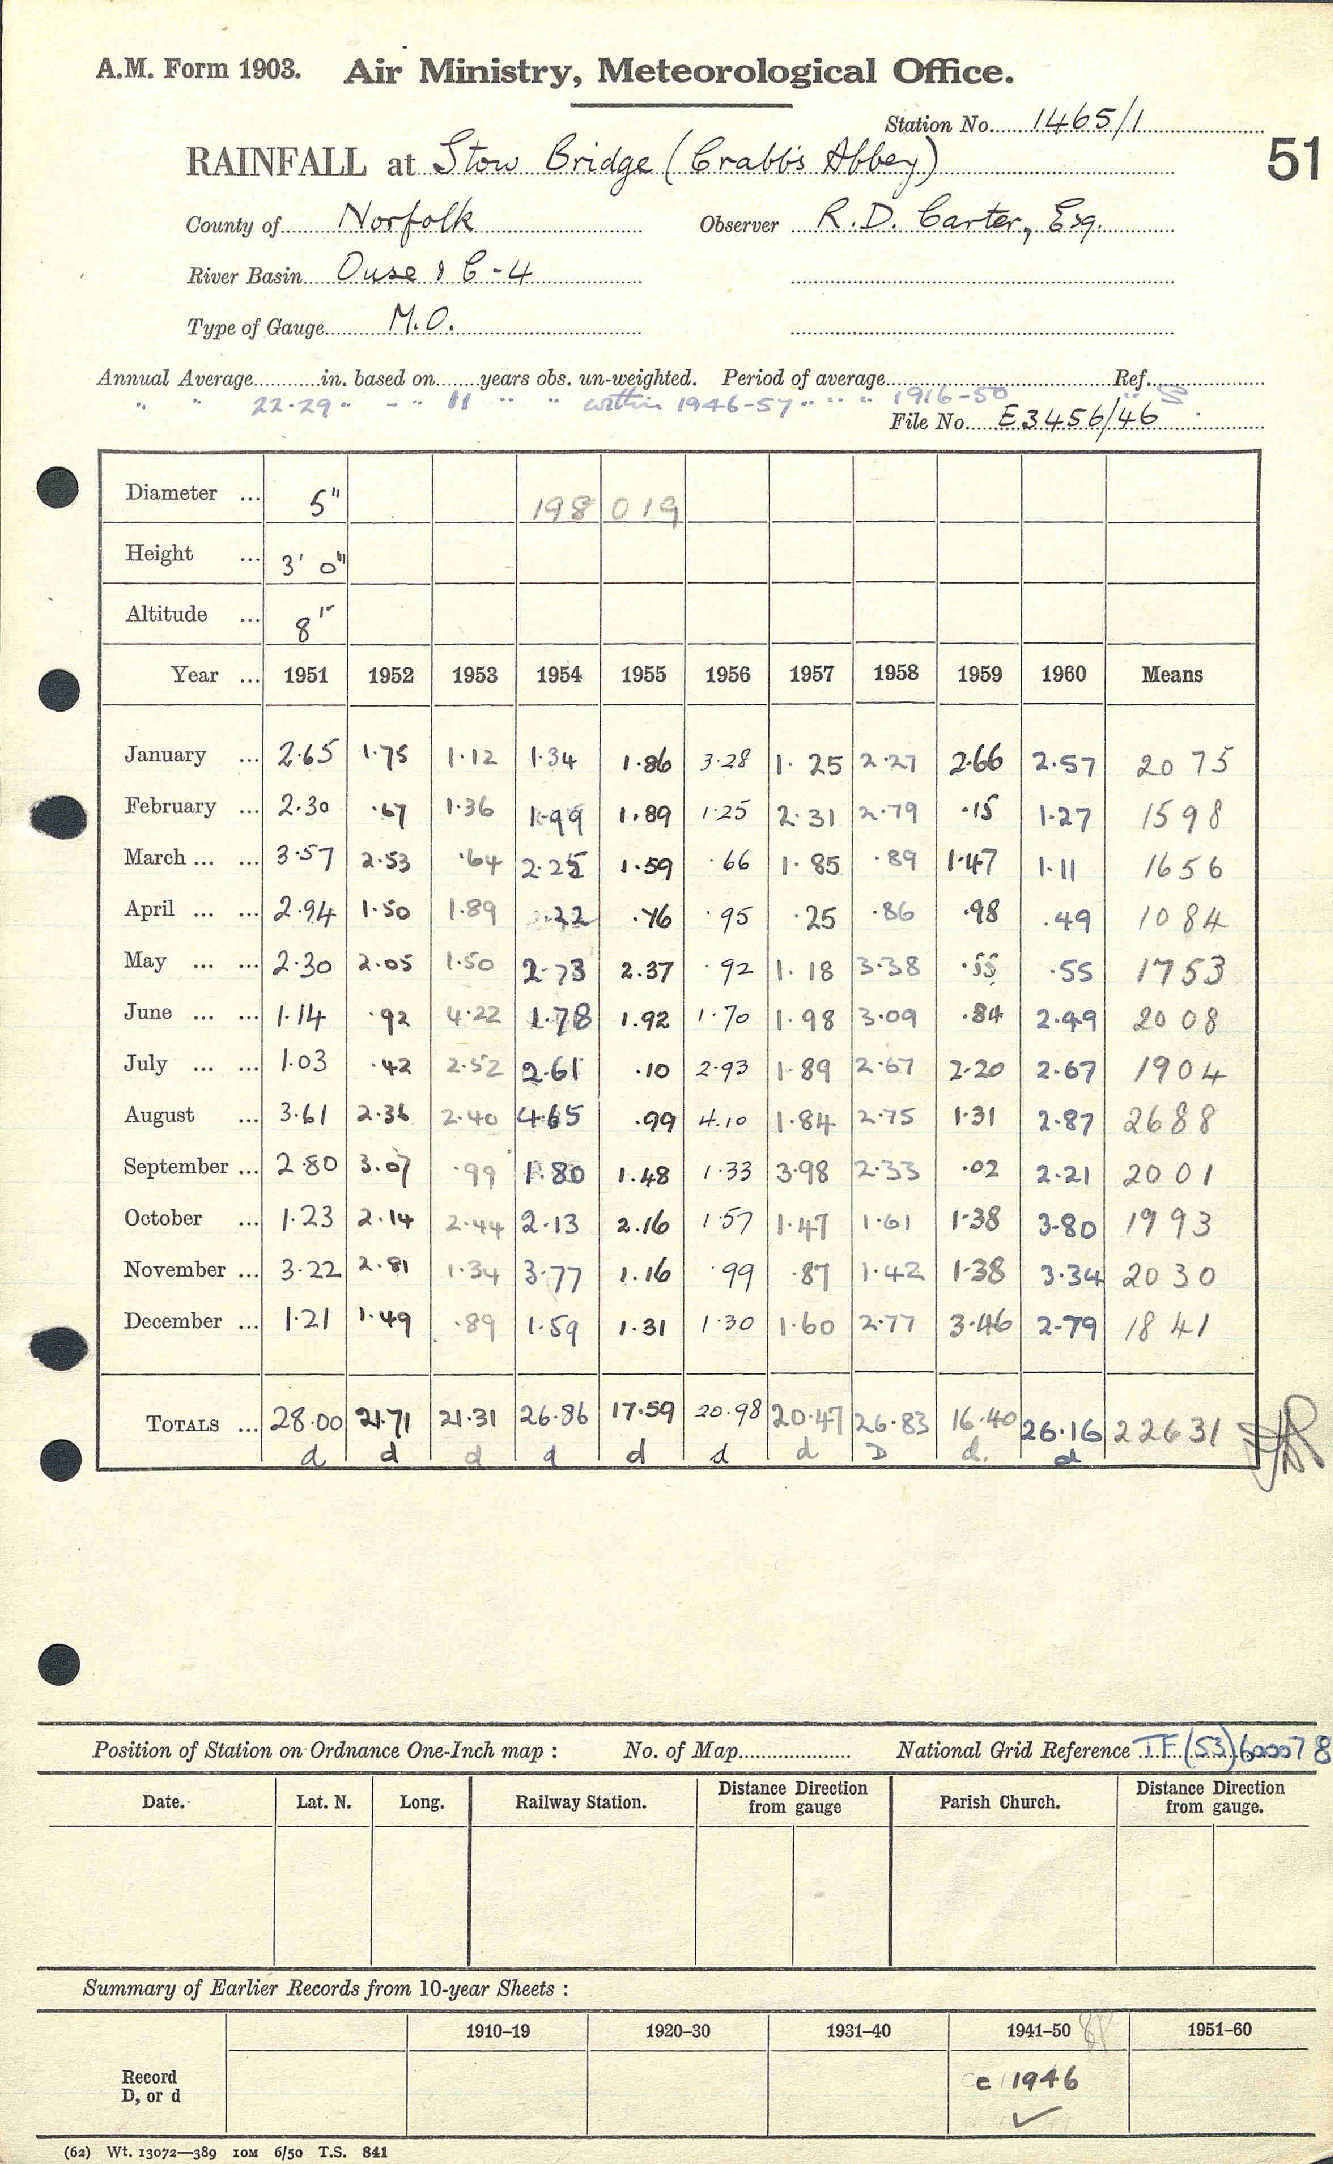 A.M. Form 1903. Air Ministry, Meteorological Office.
Station No. 1465/1
51
RAINFALL at Stow Bridge (Crabb's Abbey)
County of Norfolk Observer R.D. Carter, Esq.
River Basin Ouse 1 C-4
Type of Gauge M.O.
Annual Average in. based on years obs. un-weighted. Period of average Ref.
" " 22.29 " " " 11 " " within 1946-57 " " " 1916-50 " S.
File No. E3456/46
Diameter ... 5" 198 019
Height ... 3' 0"
Altitude ... 8 ft
Year ... 1951 1952 1953 1954 1955 1956 1957 1958 1959 1960 Means
January ... 2.65 1.75 1.12 1.34 1.86 3.28 1.25 2.27 2.66 2.57 20 75
February ... 2.30 .67 1.36 1.99 1.89 1.25 2.31 2.79 .15 1.27 15 98
March ... ... 3.57 2.53 .64 2.25 1.59 .66 1.85 .89 1.47 1.11 16 56
April ... ... 2.94 1.50 1.89 .22 .76 .95 .25 .86 .98 .49 10 84
May ... ... 2.30 2.05 1.50 2.73 2.37 .92 1.18 3.38 .55 .55 17 53
June ... ... 1.14 .92 4.22 1.78 1.92 1.70 1.98 3.09 .84 2.49 20 08
July ... ... 1.03 .42 2.52 2.61 .10 2.93 1.89 2.67 2.20 2.67 19 04
August ... 3.61 2.36 2.40 4.65 .99 4.10 1.84 2.75 1.31 2.87 26 88
September ... 2.80 3.07 .99 1.80 1.48 1.33 3.98 2.33 .02 2.21 20 01
October ... 1.23 2.14 2.44 2.13 2.16 1.57 1.47 1.61 1.38 3.80 19 93
November ... 3.22 2.81 1.34 3.77 1.16 .99 .87 1.42 1.38 3.34 20 30
December ... 1.21 1.49 .89 1.59 1.31 1.30 1.60 2.77 3.46 2.79 18 41
TOTALS ... 28.00 21.71 21.31 26.86 17.59 20.98 20.47 26.83 16.40 26.16 226 31
d d d d d d d D d. d
Position of Station on Ordnance One-Inch map : No. of Map National Grid Reference TF (53) 600078
Date. Lat. N. Long. Railway Station. Distance Direction from gauge Parish Church. Distance Direction from gauge.
Summary of Earlier Records from 10-year Sheets :
1910–19 1920–30 1931–40 1941–50 1951–60
Record D, or d c 1946
(62) Wt. 13072—389 10M 6/50 T.S. 841